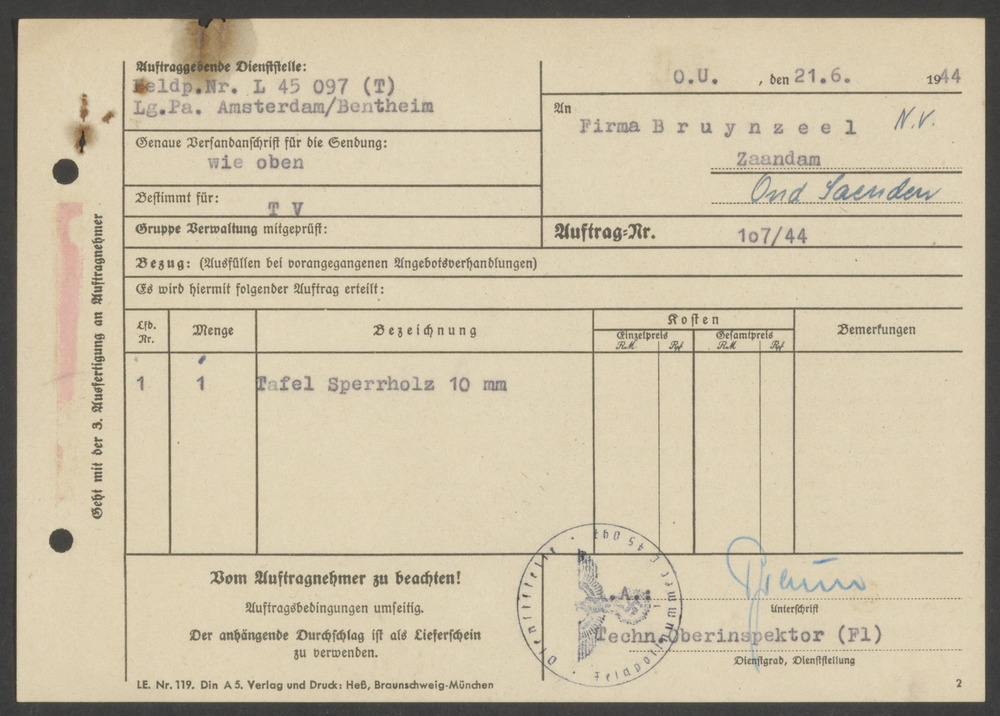 Auftraggebende Dienststelle:
Feldp.Nr. L 45 097 (T)
Lg.Pa. Amsterdam/Bentheim
Genaue Versandanschrift für die Sendung:
wie oben
Bestimmt für:
T V
Gruppe Verwaltung mitgeprüft:
O.U. , den 21.6. 1944
An
Firma Bruynzeel N.V.
Zaandam
Oud Saenden
Auftrag-Nr. 107/44
Bezug: (Ausfüllen bei vorangegangenen Angebotsverhandlungen)
Es wird hiermit folgender Auftrag erteilt:
Lfd. Nr.
Menge
Bezeichnung
Kosten
Einzelpreis
RM Rpf
Gesamtpreis
RM Rpf
Bemerkungen
1 1 Tafel Sperrholz 10 mm
Geht mit der 3. Ausfertigung an Auftragnehmer
Vom Auftragnehmer zu beachten!
Auftragsbedingungen umseitig.
Der anhängende Durchschlag ist als Lieferschein
zu verwenden.
Dienststelle Feldpostnummer L 45 097
I.A.:
Unterschrift
Techn.Oberinspektor (Fl)
Dienstgrad, Dienststellung
LE. Nr. 119. Din A 5. Verlag und Druck: Heß, Braunschweig-München
2